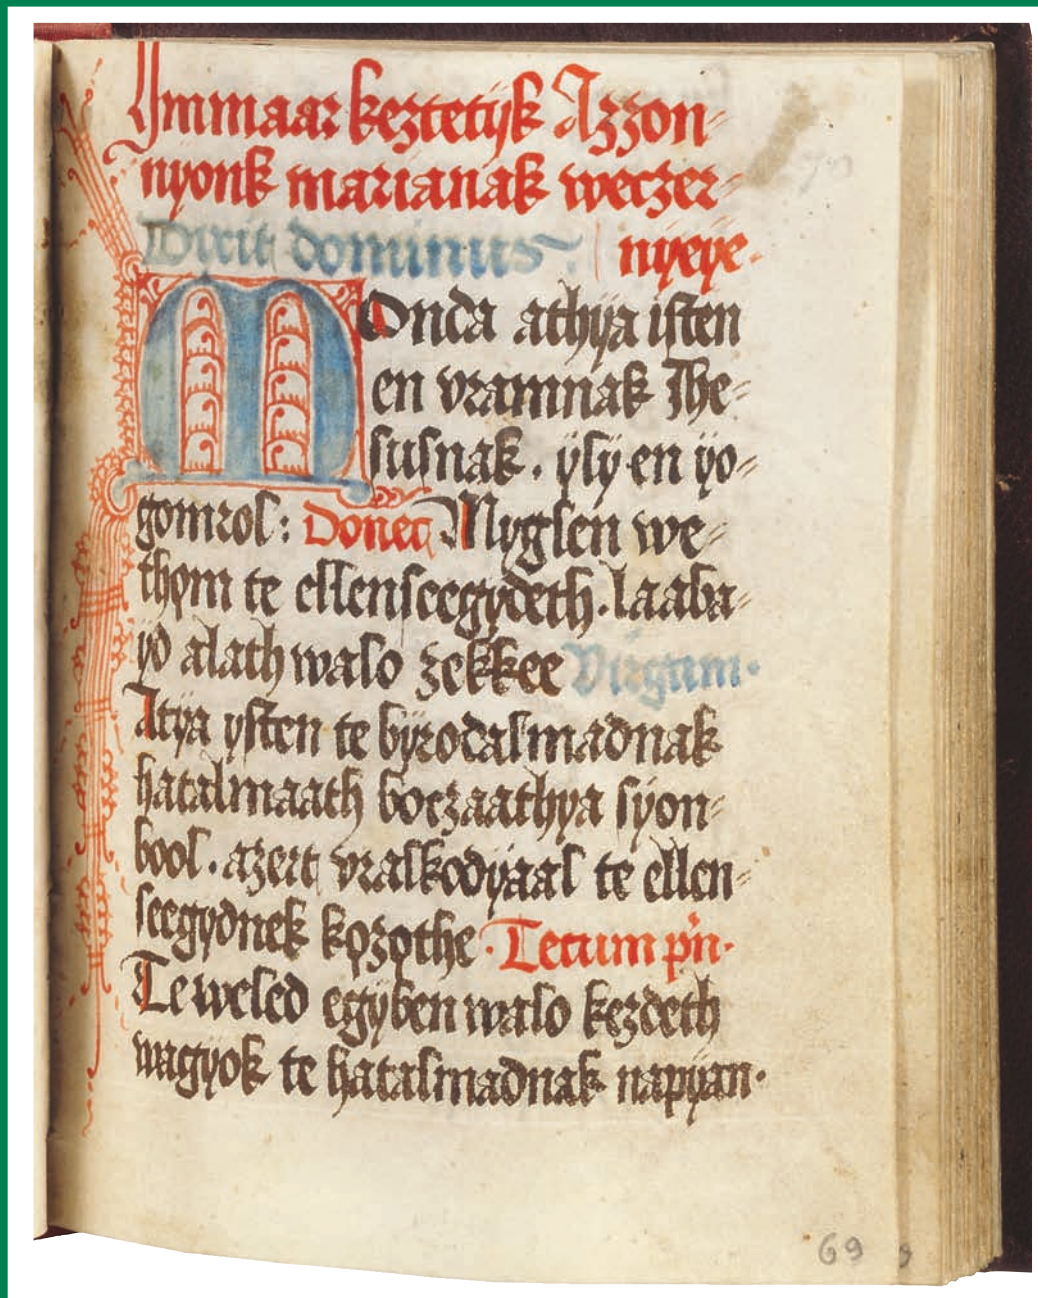 Ymmaar keztetÿk Azzon⸗
nyonk marianak weczer⸗
Dixit dominus nyeye.
MOnda athÿa isten
en vramnak Jhe⸗
susnak. ÿlÿ en ÿo⸗
gomrol: Donec Mygslen we⸗
thom te ellenseegydeth. laaba⸗
ÿd alath walo zekkee Virgam.
Atÿa ysten te bÿrodalmadnak
hatalmaath boczaathya sÿon⸗
bool. azert vralkodÿaal te ellen⸗
seegydnek kozothe. Tecum pn.
Te weled egÿben walo kezdeth
wagyok te hatalmadnak napÿan.
69